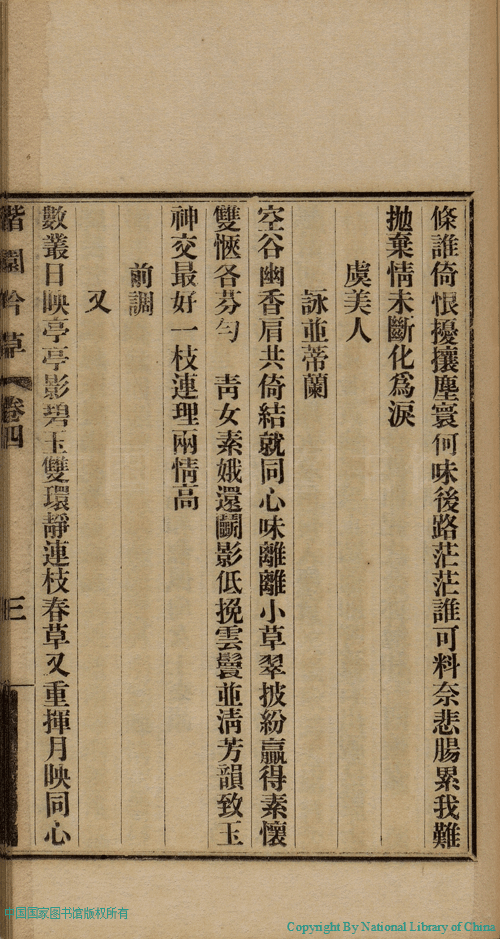 條誰倚恨擾攘塵寰何味後路茫茫誰可料奈悲腸累我難
拋棄情未斷化爲淚
虞美人
詠並蒂蘭
空谷幽香肩共倚結就同心味離離小草翠披紛贏得素懷
雙愜各芬勻 靑女素娥還鬭影低挽雲鬟並淸芳韻致玉
神交最好一枝連理兩情高
前調
又
數叢日映亭亭影碧玉雙環靜連枝春草又重揮月映同心
吟草 卷四
三
中国国家图书馆版权所有
Copyright By National Library of China